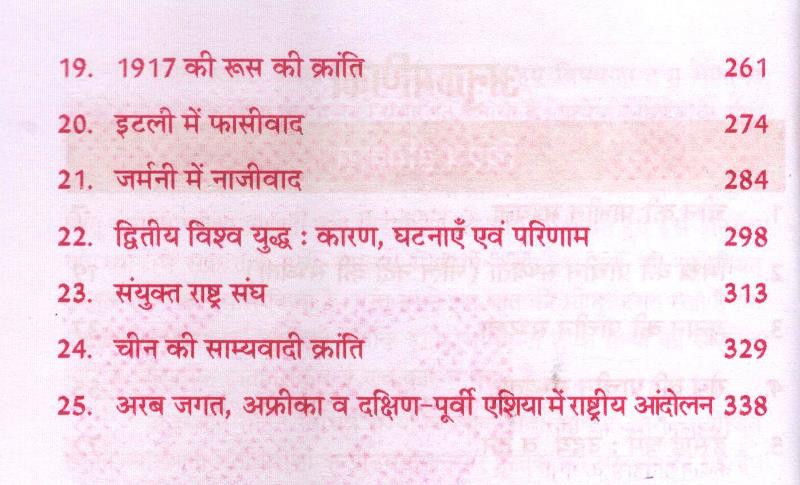 19. 1917 की रूस की क्रांति 261
20. इटली में फासीवाद 274
21. जर्मनी में नाजीवाद 284
22. द्वितीय विश्व युद्ध : कारण, घटनाएँ एवं परिणाम 298
23. संयुक्त राष्ट्र संघ 313
24. चीन की साम्यवादी क्रांति 329
25. अरब जगत, अफ्रीका व दक्षिण-पूर्वी एशिया में राष्ट्रीय आंदोलन 338